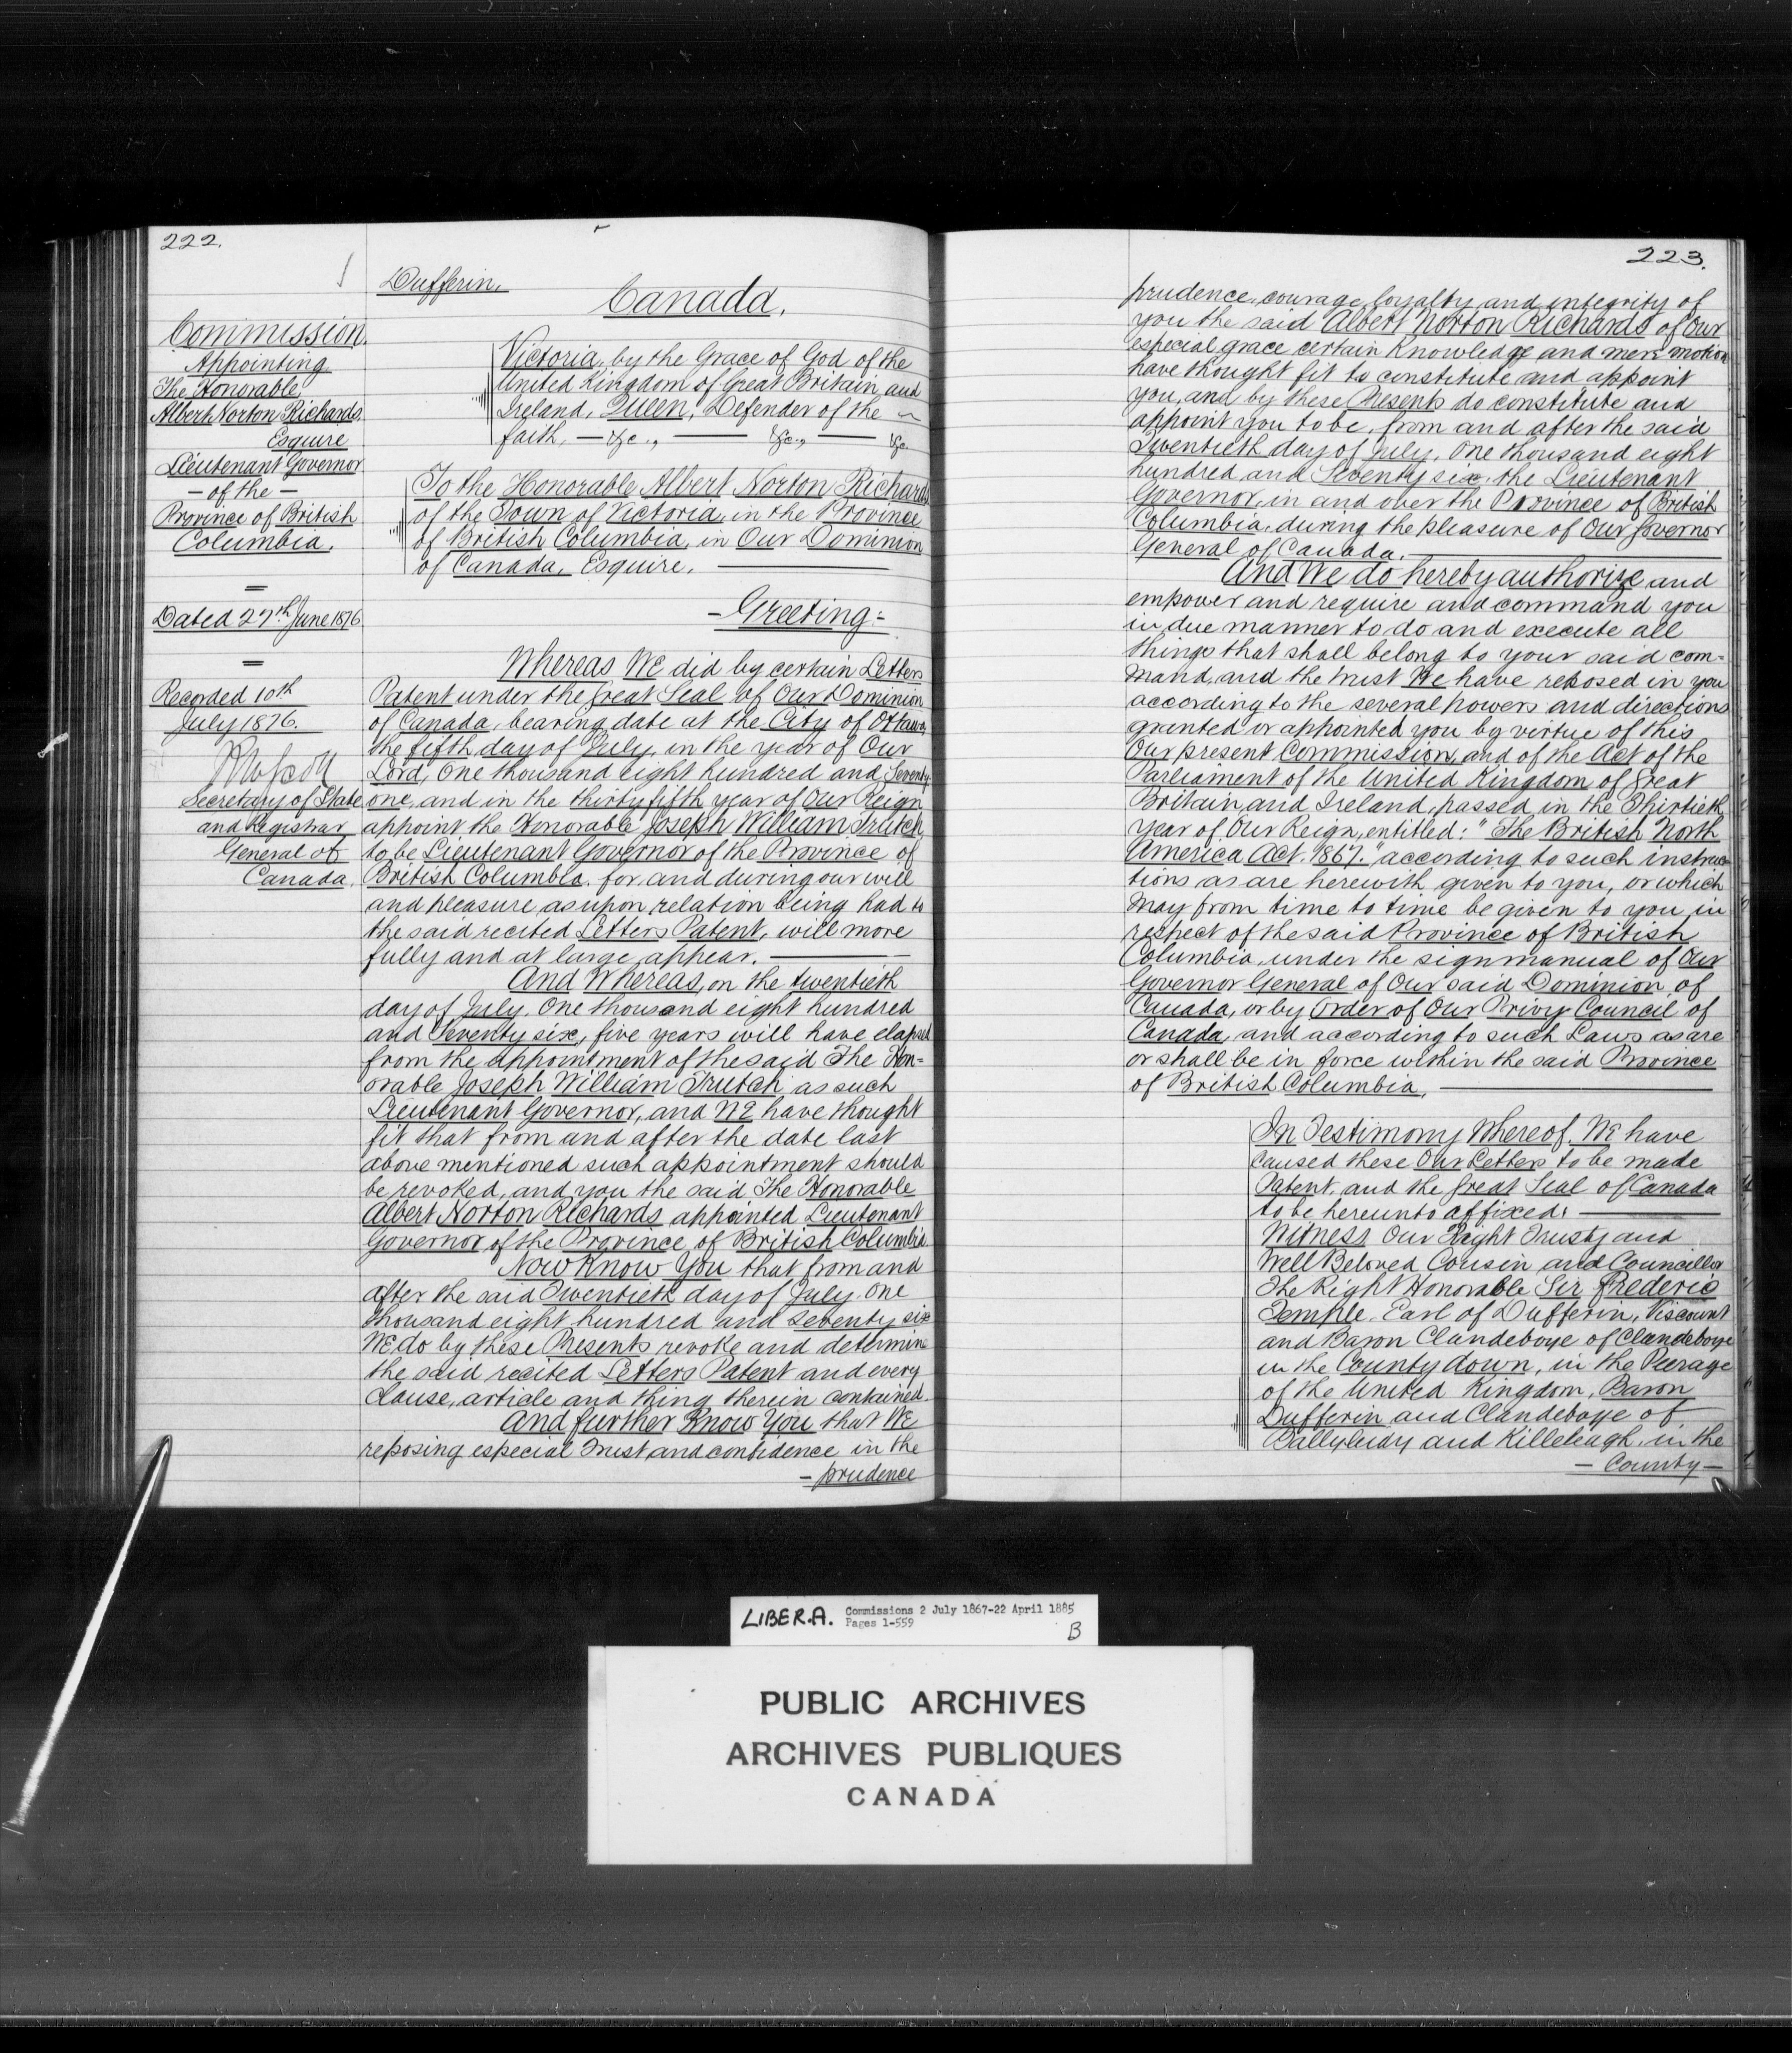 222.
Dufferin.
Canada.
Commission.
Appointing
The Honorable
Albert Norton Richards
Esquire
Lieutenant Governor
- of the -
Province of British
Columbia.
Dated 27th June 1876
Recorded 10th
July 1876.
Secretary of State
and Registrar
General of
Canada.
Victoria, by the Grace of God of the
United Kingdom of Great Britain and
Ireland, Queen, Defender of the
faith, — &c., — &c., — &c.
To the Honorable Albert Norton Richards
of the Town of Victoria, in the Province
of British Columbia, in Our Dominion
of Canada, Esquire.
- Greeting:
Whereas We did by certain Letters
Patent under the Great Seal of Our Dominion
of Canada, bearing date at the City of Ottawa,
the fifth day of July, in the year of Our
Lord, One thousand eight hundred and Seventy
one, and in the thirty fifth year of Our Reign
appoint the Honorable Joseph William Trutch
to be Lieutenant Governor of the Province of
British Columbla, for and during our will
and pleasure as upon relation being had to
the said recited Letters Patent, will more
fully and at large appear.
And Whereas, on the twentieth
day of July, One thousand eight hundred
and Seventy six, five years will have elapsed
from the appointment of the said The Hon-
orable Joseph William Trutch as such
Lieutenant Governor, and We have thought
fit that from and after the date last
above mentioned such appointment should
be revoked, and you the said The Honorable
Albert Norton Richards appointed Lieutenant
Governor of the Province of British Columbia.
Now Know You that from and
after the said Twentieth day of July, One
thousand eight hundred and Seventy six
We do by these Presents revoke and determine
the said recited Letters Patent and every
Clause, article and thing therein contained.
And further Know You that We
reposing especial Trust and confidence in the
- prudence
223.
prudence, courage, loyalty and integrity of
you the said Albert Norton Richards of Our
especial grace certain Knowledge and mere motion
have thought fit to constitute and appoint
you, and by these Presents do constitute and
appoint you to be, from and after the said
Twentieth day of July, One thousand eight
hundred and Seventy six, the Lieutenant
Governor, in and over the Province of British
Columbia, during the pleasure of Our Governor
General of Canada.
And We do hereby authorize and
empower and require and command you
in due manner to do and execute all
things that shall belong to your said com-
mand, and the trust We have reposed in you
according to the several powers and directions
granted or appointed you by virtue of this
Our present Commission, and of the Act of the
Parliament of the United Kingdom of Great
Britain and Ireland, passed in the Thirtieth
year of Our Reign, entitled: "The British North
America Act, 1867." according to such instruc
tions as are herewith given to you, or which
may from time to time be given to you in
respect of the said Province of British
Columbia, under the sign manual of Our
Governor General of Our said Dominion of
Canada, or by Order of Our Privy Council of
Canada, and according to such Laws as are
or shall be in force within the said Province
of British Columbia,
In Testimony Whereof, We have
caused these Our Letters to be made
Patent, and the Great Seal of Canada
to be hereunto affixed:
Witness Our Right Trusty and
Well Beloved Cousin and Councillor
The Right Honorable Sir Frederic
Temple, Earl of Dufferin, Viscount
and Baron Clandeboye of Clandeboye
in the County down, in the Peerage
of the United Kingdom, Baron
Dufferin and Clandeboye of
Ballyleidy and Killeleagh, in the
- County -
LIBER.A. Commissions 2 July 1867-22 April 1885
Pages 1-559
B
PUBLIC ARCHIVES
ARCHIVES PUBLIQUES
CANADA